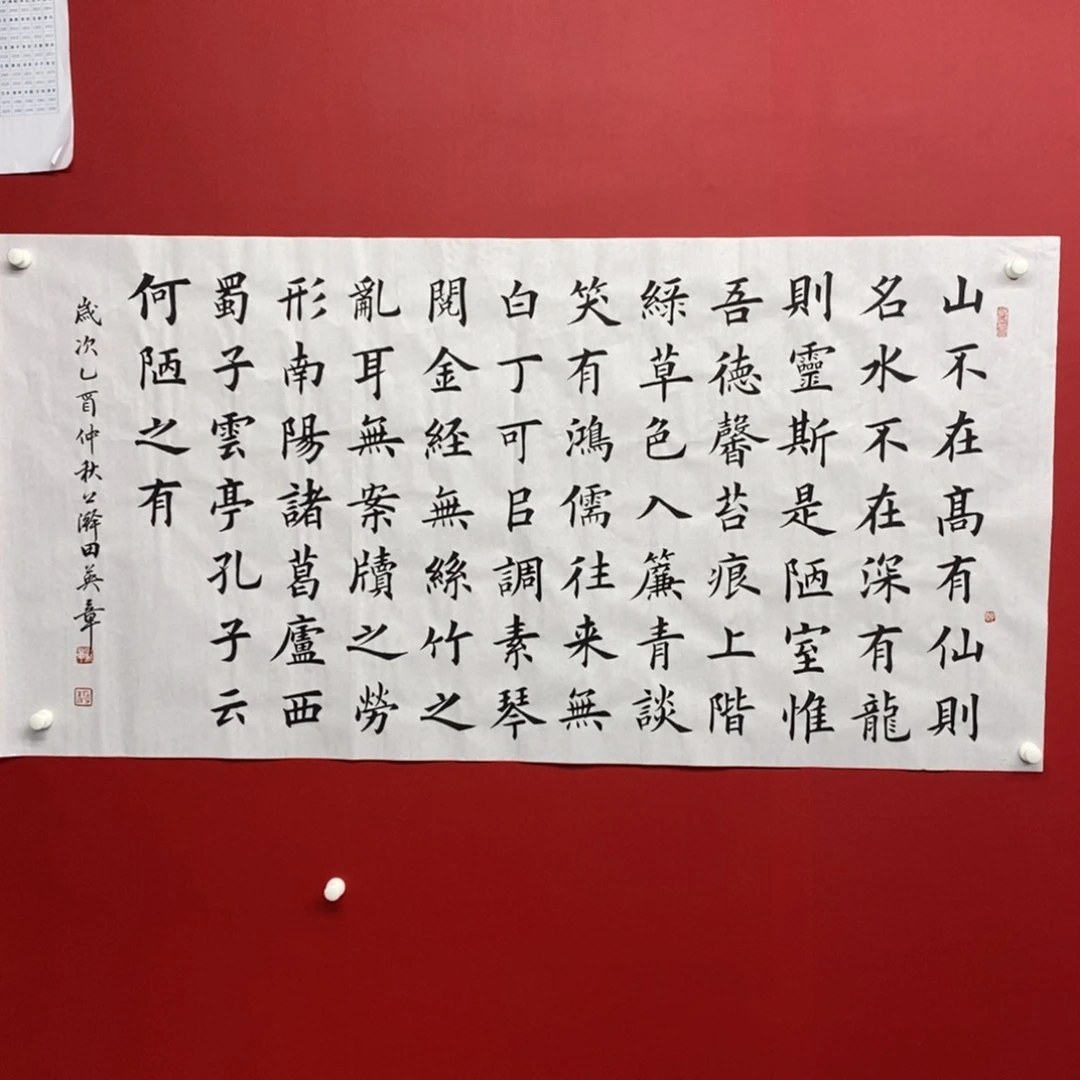 山不在髙有仙則
名水不在深有龍
則靈斯是陋室惟
吾德馨苔痕上階
綠草色入簾青談
笑有鴻儒往来無
白丁可㠯調素琴
閱金経無絲竹之
亂耳無案牘之勞
形南陽諸葛廬西
蜀子雲亭孔子云
何陋之有
歲次乙酉仲秋田英章